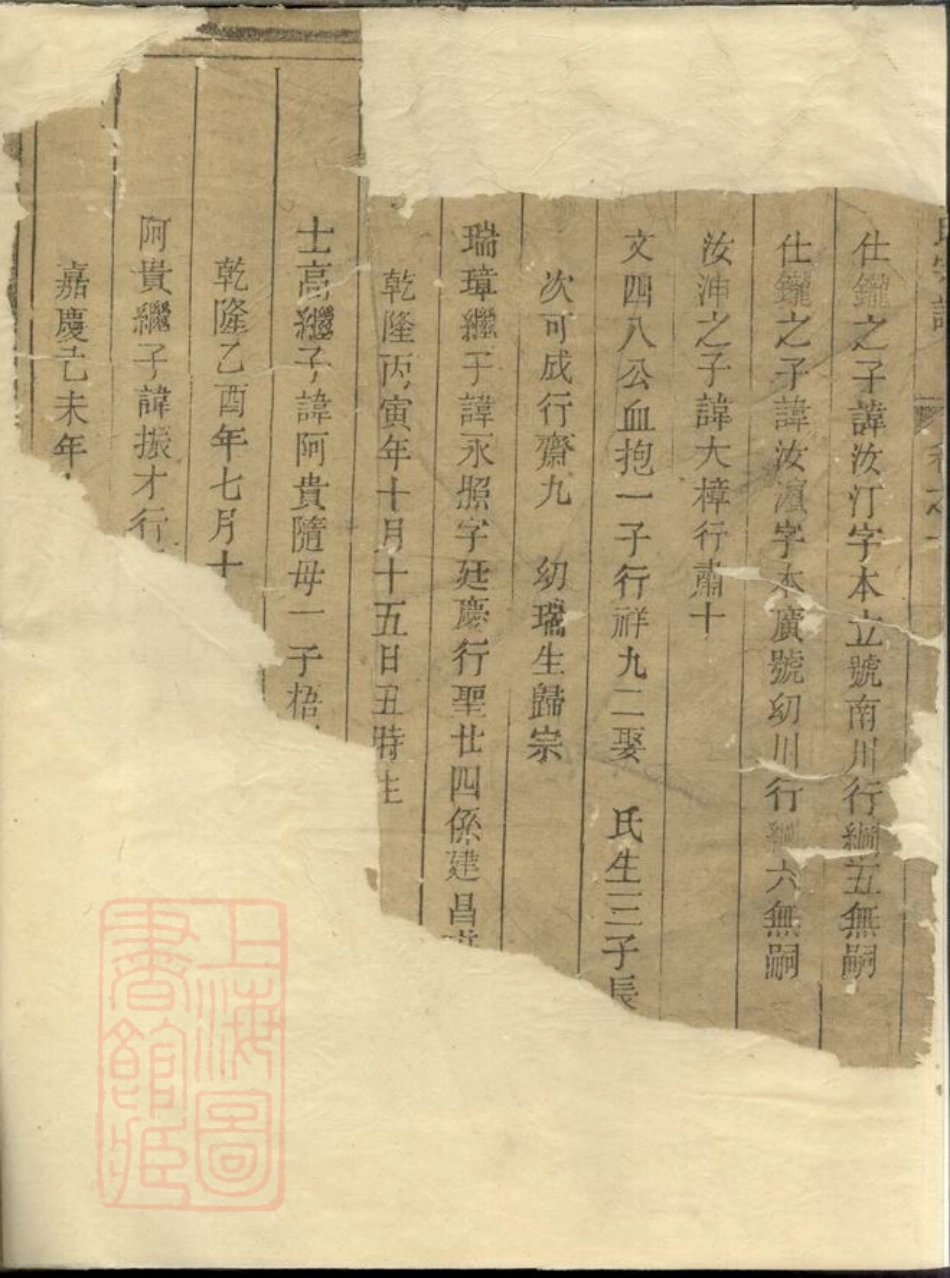 仕鑨之子諱汝汀字本立號南川行綱五無嗣
仕鑨之子諱汝濵字本廣號幼川行綱六無嗣
汝沖之子諱大樟行肅十
文四八公血抱一子行祥九二娶 氏生三子長
次可成行齋九 幼瑞生歸宗
瑞璋繼子諱永照字廷慶行聖廿四係建昌
乾隆丙寅年十月十五日丑時生
士高繼子諱阿貴隨母一子梧
乾隆乙酉年七月十
阿貴繼子諱振才行
嘉慶己未年
上海圖書館藏